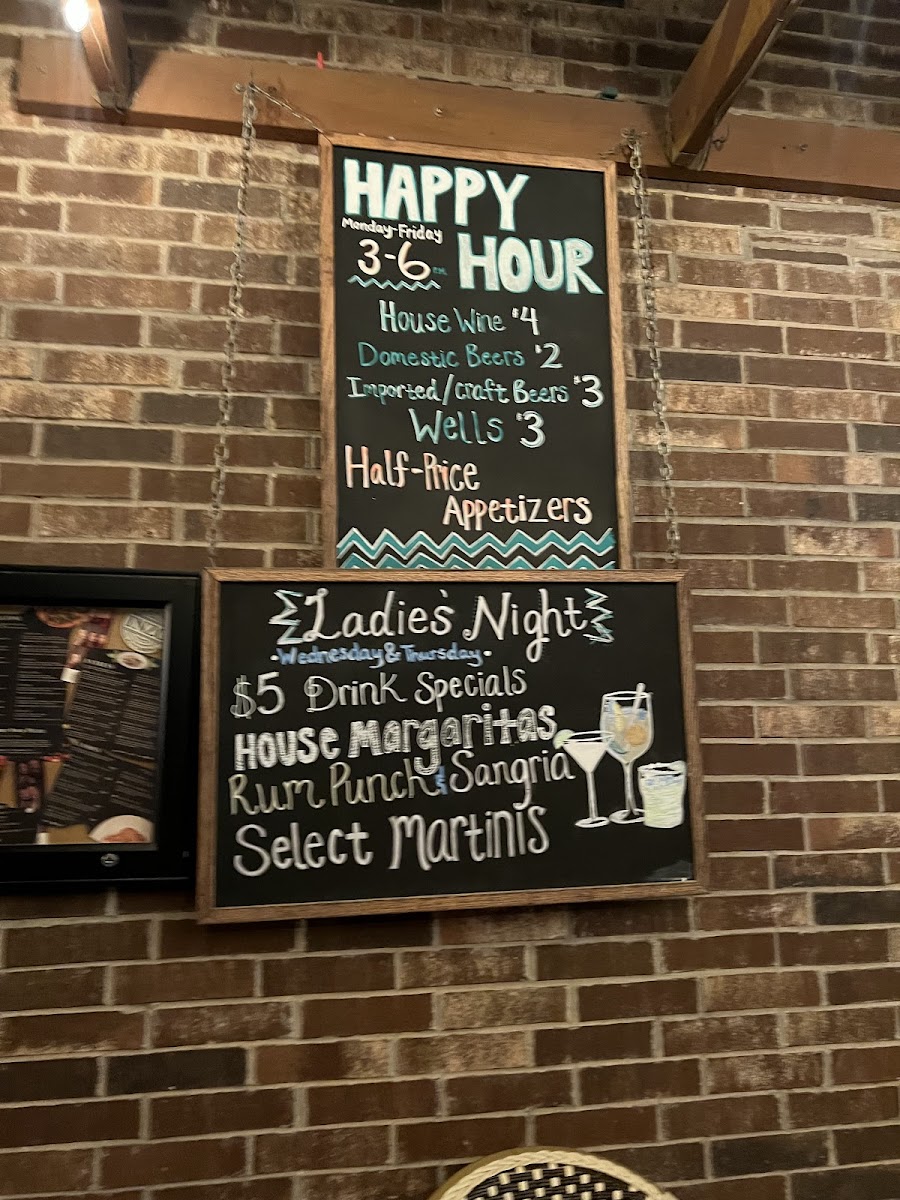 HAPPY
Monday-Friday
3-6 P.M.
HOUR
House Wine $4
Domestic Beers $2
Imported/Craft Beers $3
Wells $3
Half-Price
Appetizers
Ladies' Night
•Wednesday & Thursday•
$5 Drink Specials
House Margaritas
Rum Punch & Sangria
Select Martinis